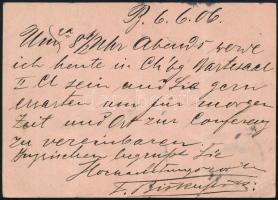 B. 6.6.06.
Um 8½ Uhr Abends werde
ich heute i. Ch'bg Wartesaal
II Cl sein und Sie gern
erwarten um für morgen
Zeit und Ort zur Conferenz
zu vereinbaren
Inzwischen begrüßt Sie
Hochachtungsvoll
F.